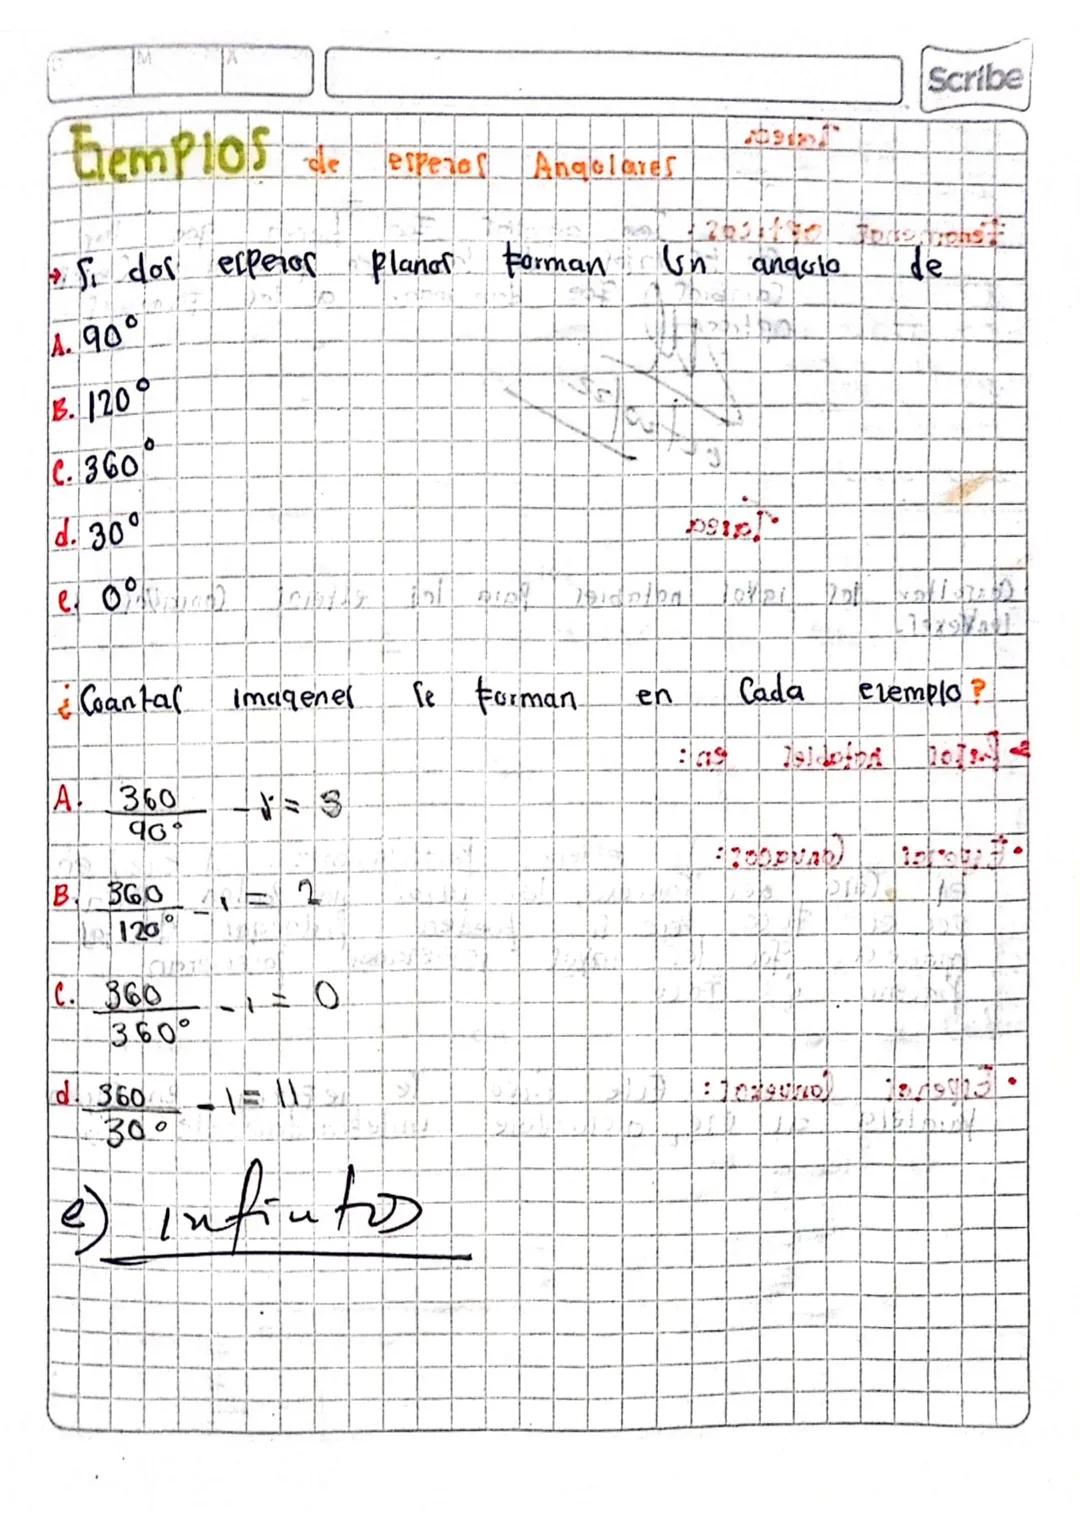 M A
Scribe
Ejemplos de espejos Angulares
→ Si dos espejos planos forman Un angulo de
A. 90°
B. 120°
C. 360°
d. 30°
e. 0°
¿Cuantas imagenes se forman en Cada ejemplo?
A. 360/90° - 1 = 3
B. 360/120° - 1 = 2
C. 360/360° - 1 = 0
d. 360/30° - 1 = 11
e) infinitos